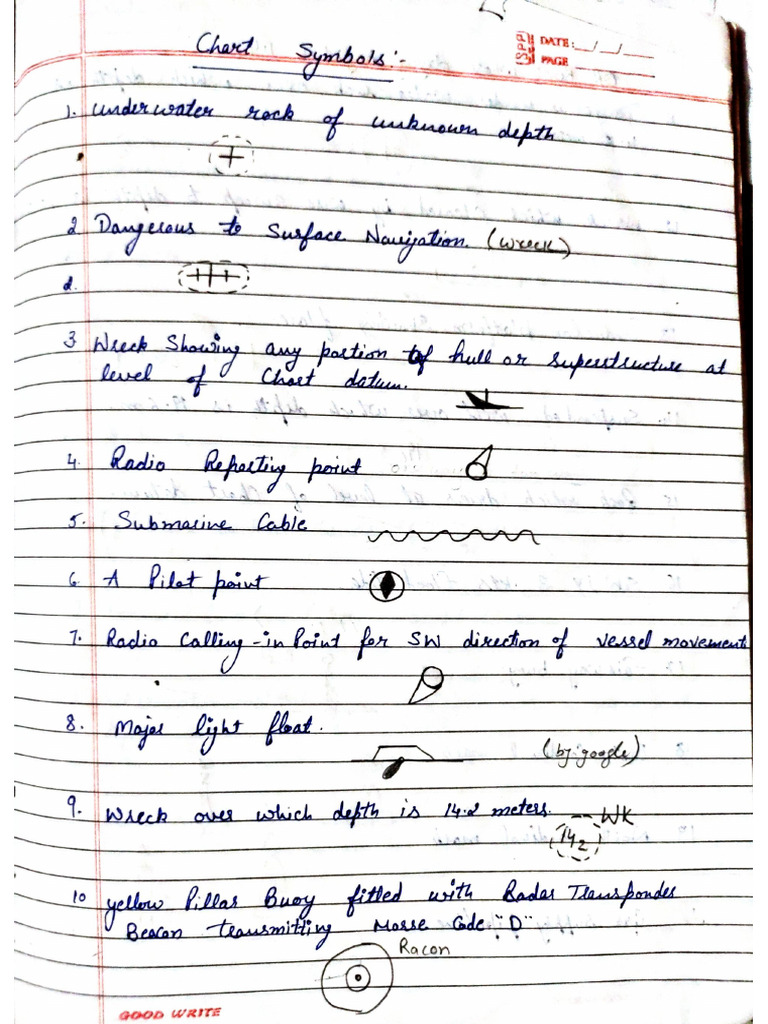 Chart Symbols:-
SPP DATE: __/__/__
PAGE
1. underwater rock of unknown depth
2 Dangerous to Surface Navigation. (wreck)
2.
3 Wreck Showing any portion of hull or superstructure at
level of Chart datum.
4. Radio Reporting point
5. Submarine Cable
6. A Pilot point
7. Radio Calling-in Point for SW direction of vessel movements
8. Major light float.
(by google)
9. Wreck over which depth is 14.2 meters.
14₂ WK
10 yellow Pillar Buoy fitted with Radar Transponder
Beacon transmitting Morse Code "D"
Racon
GOOD WRITE